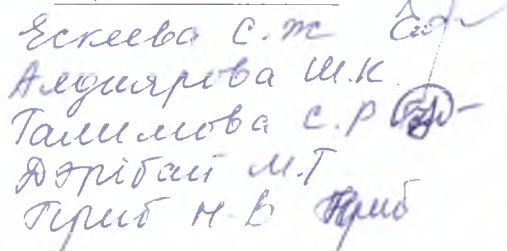 Ескеева С.Ж
Алдиярова Ш.К
Галимова С.Р
Дәрібай М.Т
Приб Н.В Приб